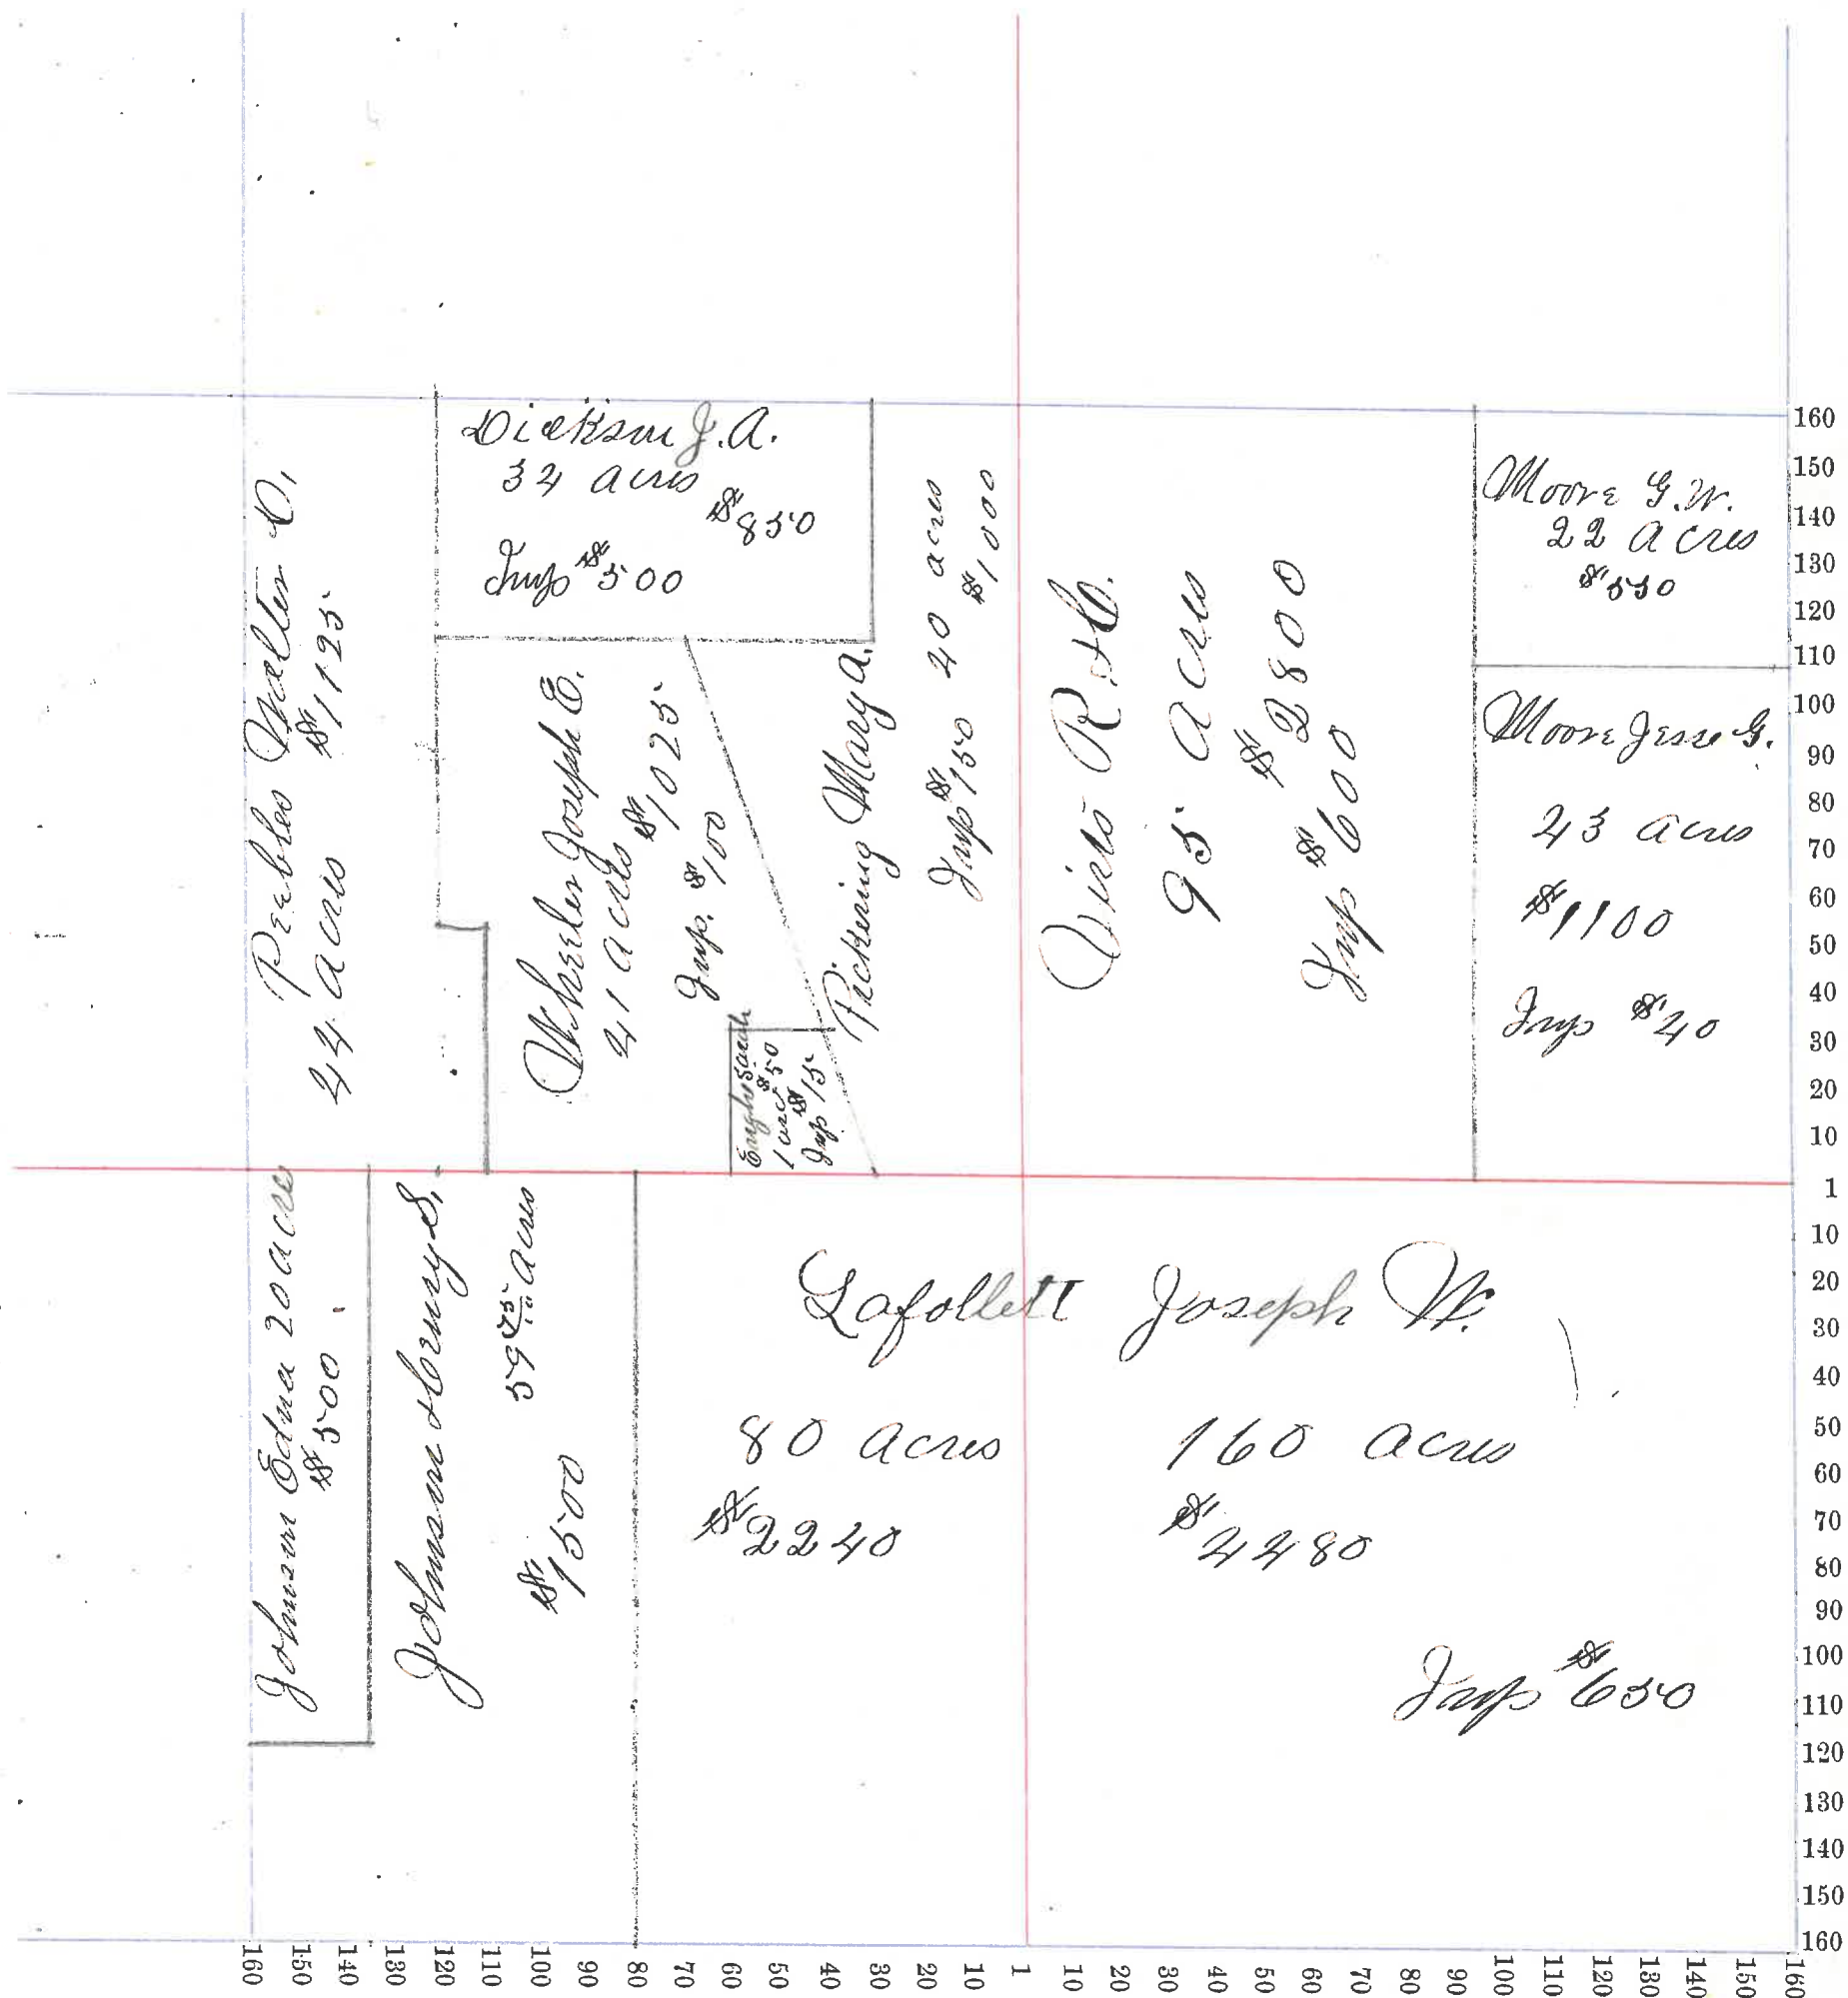 Dickson J. A.
34 acres
$850
Imp $500
Peebles Walter D.
44 acres $1125
Wheeler Joseph E.
41 acres $1025
Imp. $100
Pickering Mary A.
Imp $150 40 acres
$1000
Sarah
1 acre $50
Imp $15
Virts R. H.
95 acres
$2800
Imp $600
Moore G. W.
22 acres
$550
Moore Jesse G.
43 acres
$1100
Imp $40
Johnson Edna 20 acre
$500
Johnson Henry S.
59 75 acres
$1500
Lafollett Joseph W.
80 acres 160 acres
$2240 $4480
Imp $650
160
150
140
130
120
110
100
90
80
70
60
50
40
30
20
10
1
10
20
30
40
50
60
70
80
90
100
110
120
130
140
150
160
160 150 140 130 120 110 100 90 80 70 60 50 40 30 20 10 1 10 20 30 40 50 60 70 80 90 100 110 120 130 140 150 160